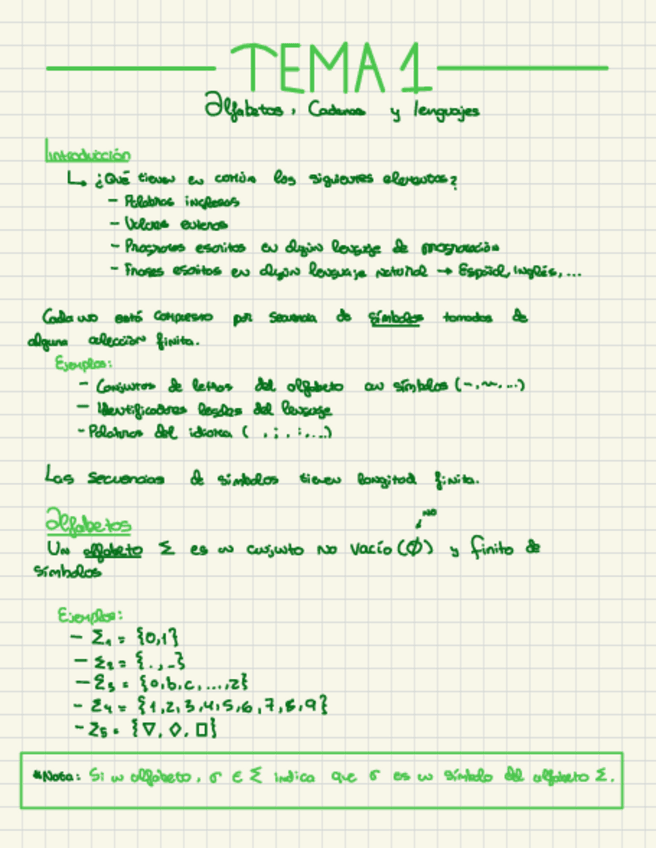 TEMA 1
Alfabetos, Cadenas y lenguajes
Introducción
↳ ¿Qué tienen en común los siguientes elementos?
- Palabras inglesas
- Valores enteros
- Programas escritos en algún lenguaje de programación
- Frases escritas en algún lenguaje natural → Español, Inglés, ...
Cada uno está compuesto por secuencia de símbolos tomados de
alguna colección finita.
Ejemplos:
- Conjuntos de letras del alfabeto con símbolos (-, ~, ...)
- Identificadores del lenguaje
- Palabras del idioma ( , ; . : , ...)
Las secuencias de símbolos tienen longitud finita.
Alfabetos
NO
Un alfabeto Σ es un conjunto no vacío (∅) y finito de
símbolos
Ejemplos:
- Σ₁ = {0,1}
- Σ₂ = {., _}
- Σ₃ = {a,b,c,...,z}
- Σ₄ = {1,2,3,4,5,6,7,8,9}
- Σ₅ = {▽, ◇, □}
*Nota: Si un alfabeto, σ ∈ Σ indica que σ es un símbolo del alfabeto Σ.